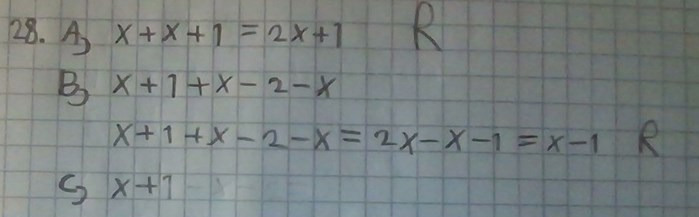 28. A) x+x+1=2x+1 R
B) x+1+x-2-x
x+1+x-2-x=2x-x-1=x-1 R
C) x+1